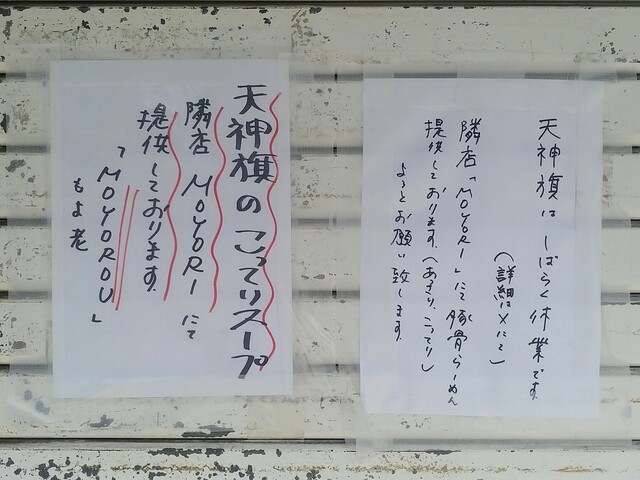 天神旗は しばらく休業です。
(詳細はXにて)
隣店「MOYORI」にて豚骨らーめん
提供しております。(あっさり、こってり)
よろしくお願い致します。
天神旗の こってりスープ
隣店 MOYORI にて
提供しております。
「MOYOROU」
もよ老